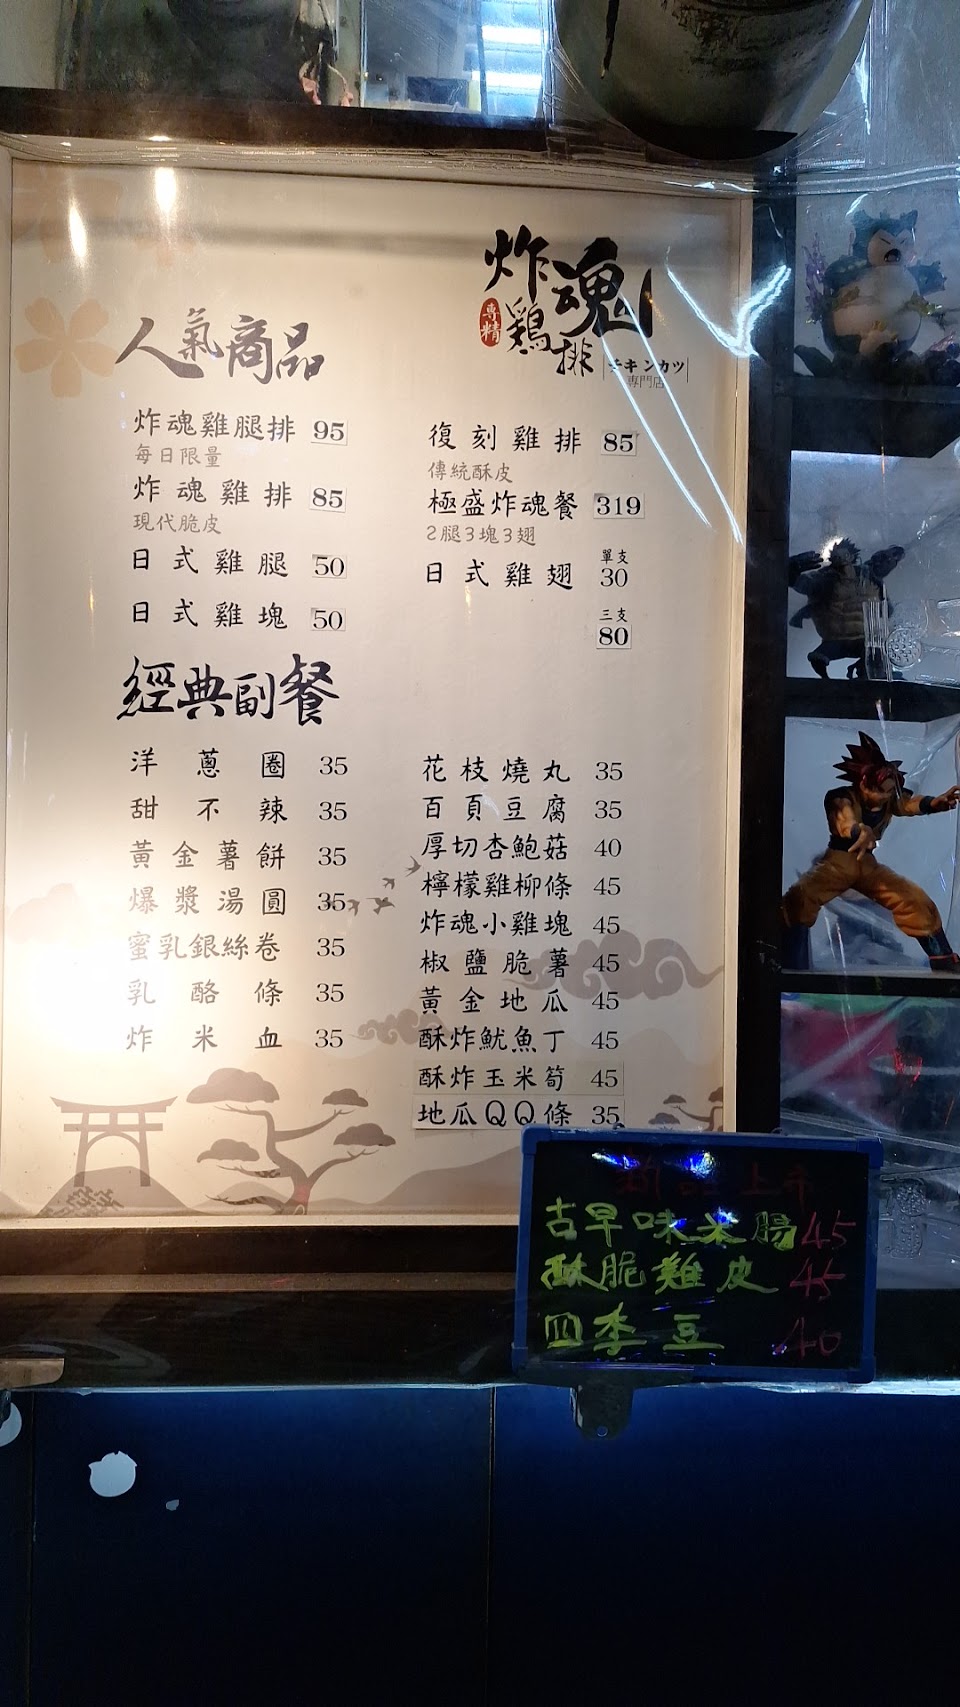 炸魂
專精
鷄排
チキンカツ
専門店
人氣商品
炸魂雞腿排 95
每日限量
炸魂雞排 85
現代脆皮
日式雞腿 50
日式雞塊 50
復刻雞排 85
傳統酥皮
極盛炸魂餐 319
2腿3塊3翅
日式雞翅 單支 30
三支 80
經典副餐
洋蔥圈 35
甜不辣 35
黃金薯餅 35
爆漿湯圓 35
蜜乳銀絲卷 35
乳酪條 35
炸米血 35
花枝燒丸 35
百頁豆腐 35
厚切杏鮑菇 40
檸檬雞柳條 45
炸魂小雞塊 45
椒鹽脆薯 45
黃金地瓜 45
酥炸魷魚丁 45
酥炸玉米筍 45
地瓜QQ條 35
新品上市
古早味米腸 45
酥脆雞皮 45
四季豆 40